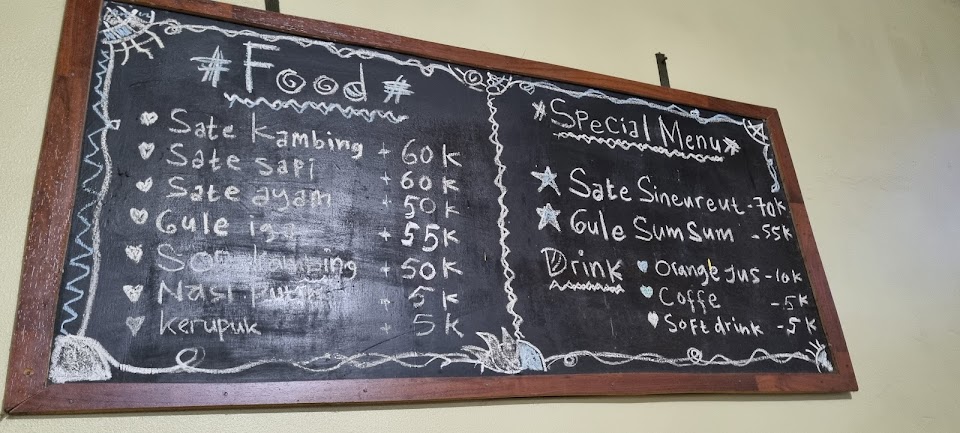 # Food #
Sate Kambing + 60K
Sate sapi + 60K
Sate ayam + 50K
Gule iga + 55K
Sop kambing + 50K
Nasi putih + 5K
Kerupuk + 5K
*Special Menu*
Sate Sineureut -70K
Gule SumSum -55K
Drink
orange Jus -10K
Coffe -5K
Soft drink -5K